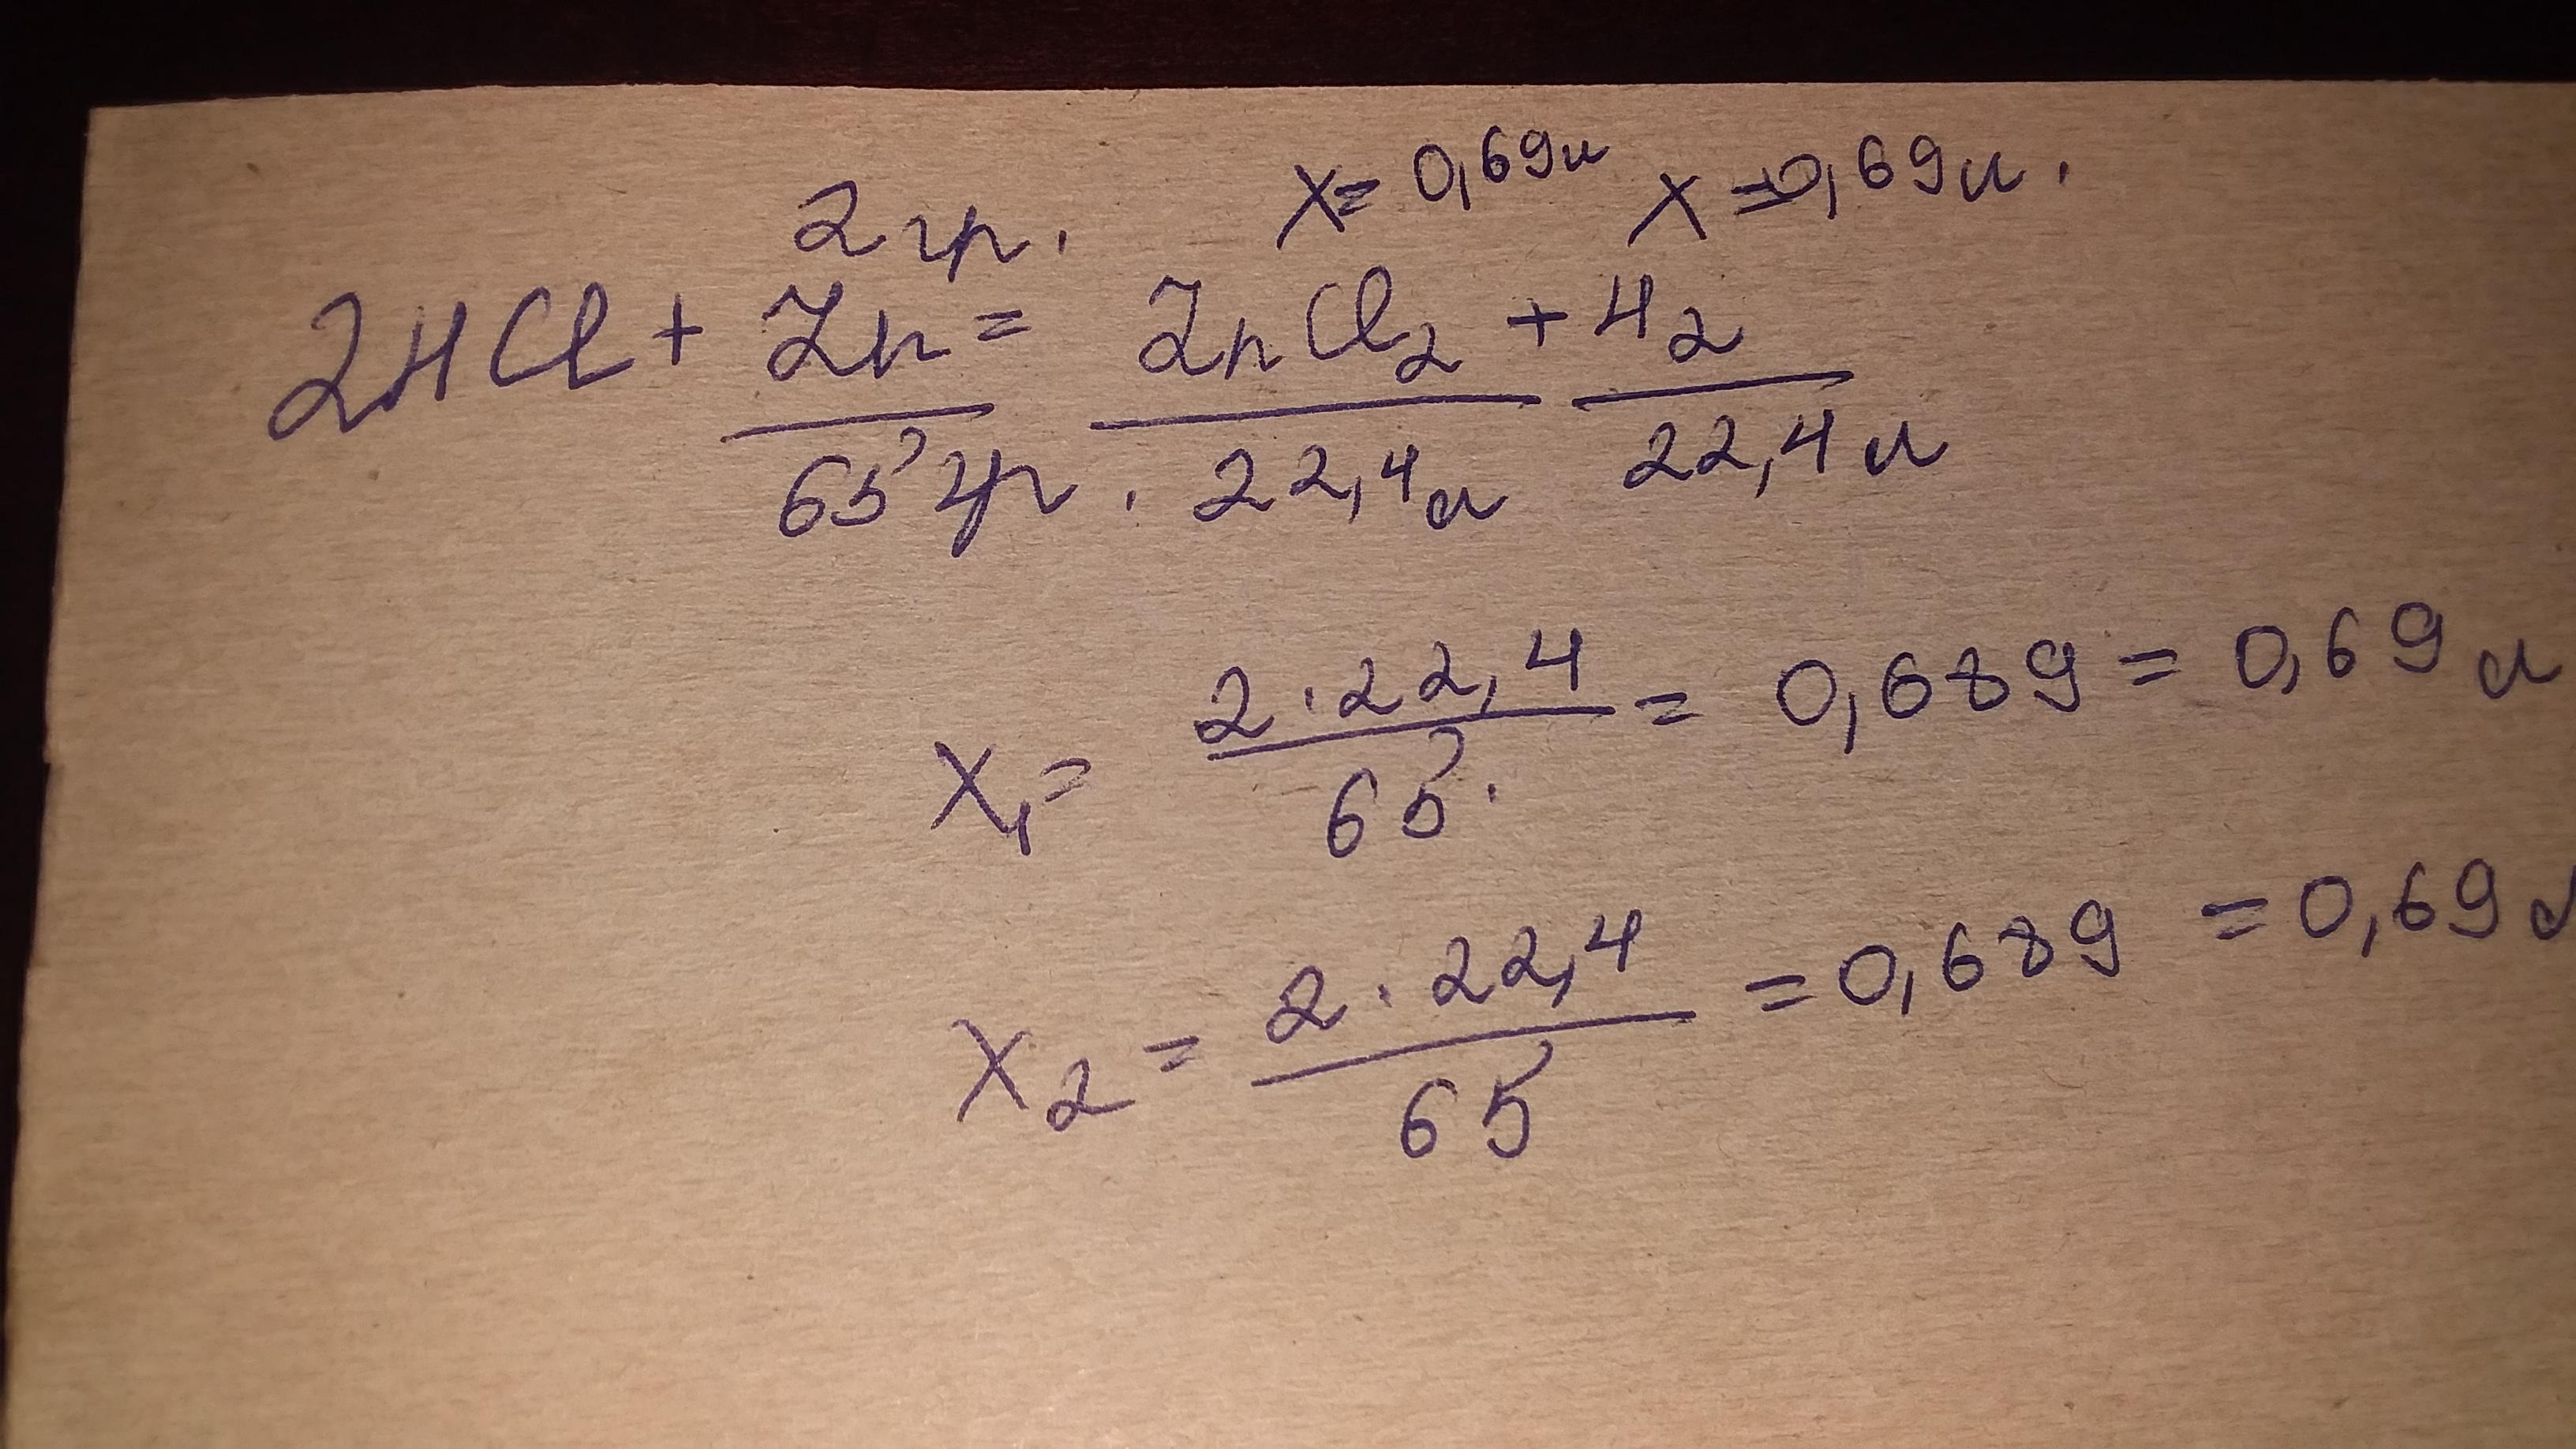 2 гр. x = 0,69 л x = 0,69 л.
2HCl + Zn = ZnCl₂ + H₂
65 гр. 22,4 л 22,4 л
x₁ = 2 · 22,4 / 65 = 0,689 = 0,69 л
x₂ = 2 · 22,4 / 65 = 0,689 = 0,69 л